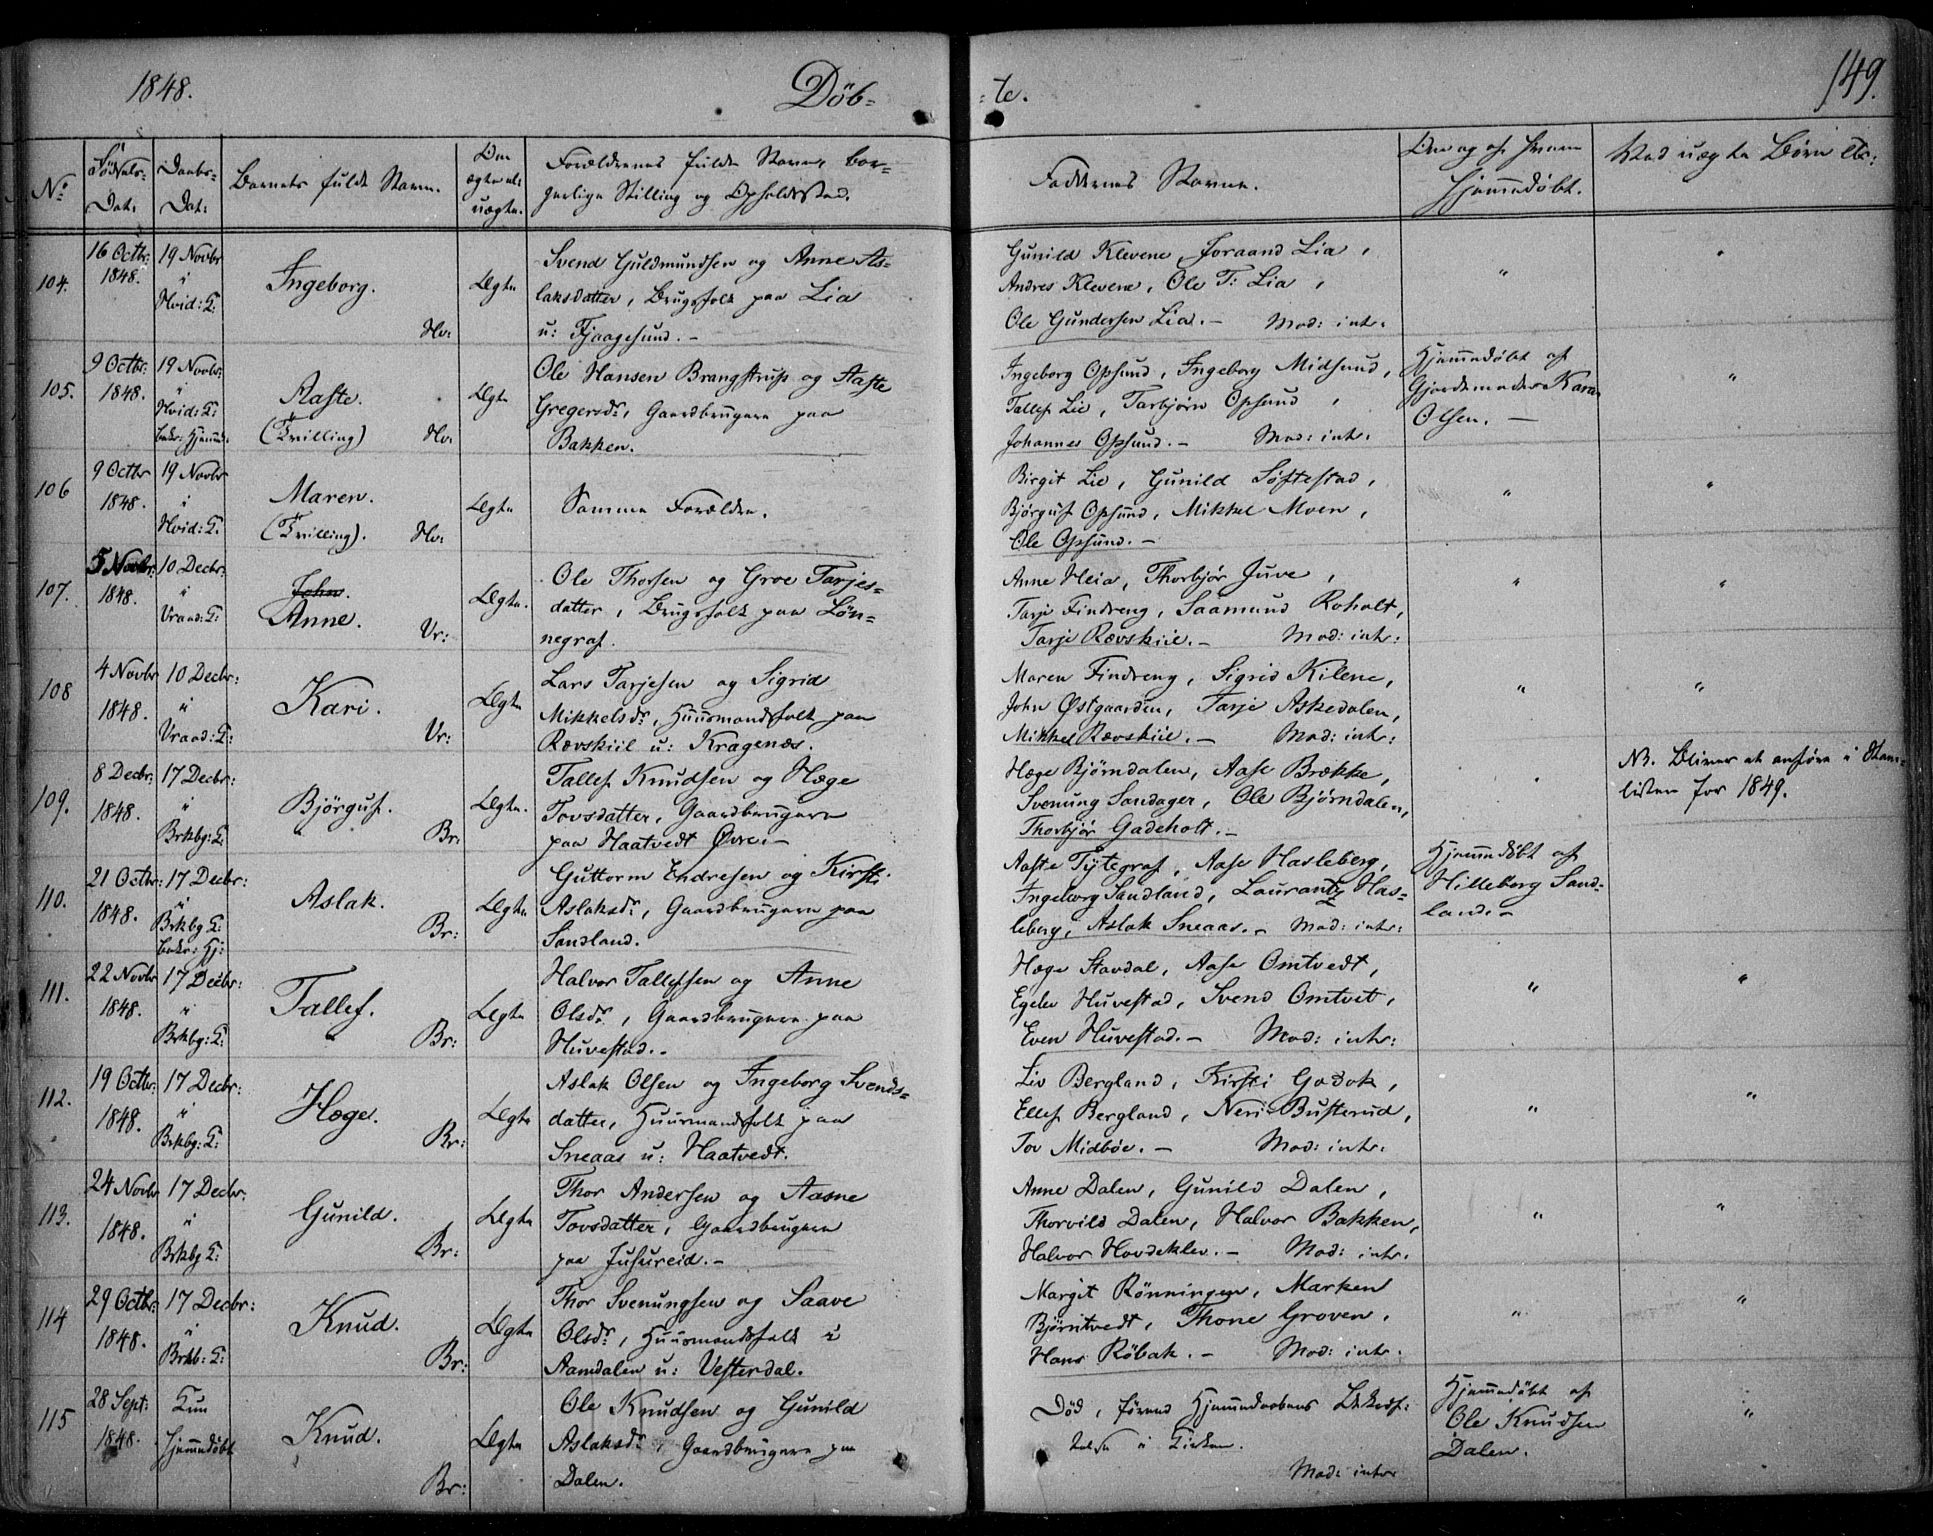 1848.
Døb-
-te.
149.
No
Fødsels-
Dat:
Daabs-
Dat:
Barnets fulde Navn.
Om
ægte el:
uægte.
Forældrenes fulde Navne, bor-
gerlige Stilling og Opholdssted.
Faddernes Navne.
Om og af hvem
hjemmedøbt.
Ved uægte Børn etc:
104.
16 Octbr:
1848.
19 Novbr
"
Hvid: K:
Ingeborg.
Hv:
Ægte
Svend Guldmundsen og Anne As-
laksdatter, Brugsfolk paa Lia
u: Fjaagesund. -
Gunild Klevene, Joraand Lia,
Andres Klevene, Ole T: Lia,
Ole Gundersen Lia. - Mod: intr:
"
"
105.
9 Octbr:
1848.
19 Novbr:
"
Hvid: K:
bekr: Hjemmed:
Aaste.
(Tvilling) Hv:
Ægte
Ole Hansen Brangstrup og Aaste
Gregersdr, Gaardbrugere paa
Bakken.
Ingeborg Opsund, Ingeborg Midsund,
Tallef Lie, Tarbjørn Opsund,
Johannes Opsund. - Mod: intr:
Hjemmedøbt af
Gjordemoder Karen
Olsen. -
"
106
9 Octbr
1848.
19 Novbr
"
Hvid: K:
Maren.
(Tvilling). Hv:
Ægte
Samme Forældre.
Birgit Lie, Gunild Søftestad,
Bjørguf Opsund, Mikkel Moen,
Ole Opsund. -
"
"
107.
5 Novbr:
1848.
10 Decbr:
"
Vraad: K:
John.
Anne.
Vr:
Ægte.
Ole Thorsen og Groe Tarjes-
datter, Brugsfolk paa Løn-
negraf.
Anne Heia, Thorbjør Juve,
Tarje Findreng, Saamund Roholt,
Tarje Rævskiil. - Mod: intr:
"
"
108
4 Novbr
1848.
10 Decbr:
"
Vraad: K:
Kari.
Vr:
Ægte
Lars Tarjesen og Sigrid
Mikkelsdr, Huusmandsfolk paa
Rævskiil u: Kragenæs.
Maren Findreng, Sigrid Kilene,
John Østgaarden, Tarje Askedalen,
Mikkel Rævskiil. - Mod: intr:
"
"
109.
8 Decbr:
1848.
17 Decbr:
"
Brkbg: K:
Bjørguf.
Br:
Ægte.
Tallef Knudsen og Hæge
Tovsdatter, Gaardbrugere
paa Haatvedt Øvre. -
Hæge Bjørndalen, Aase Brække,
Svenung Sandager, Ole Bjørndalen,
Thorbjør Gadeholt. -
"
NB. Bliver at anføre i Stam-
listen for 1849.
110.
21 Octbr:
1848.
17 Decbr:
"
Brkbg K:
bekr: Hj:
Aslak.
Br:
Ægte
Guttorm Endresen og Kirsti
Aslaksdr, Gaardbrugere paa
Sandland.
Aaste Tytegraf, Aase Hasleberg,
Ingeborg Sandland, Laurantz Has-
leberg, Aslak Sneaas. - Mod: intr:
Hjemmedøbt af
Hilleborg Sand-
land. -
111.
22 Novbr
1848.
17 Decbr:
"
Brkbg: K:
Tallef.
Br:
Ægte
Halvor Tallefsen og Anne
Olsdr, Gaardbrugere paa
Huvestad. -
Hæge Stavdal, Aase Omtvedt,
Egelev Huvestad, Svend Omtvet,
Even Huvestad. - Mod: intr:
"
"
112.
19 Octbr:
1848.
17 Decbr:
"
Brkbg: K:
Hæge.
Br:
Ægte
Aslak Olsen og Ingeborg Svends-
datter, Huusmandsfolk paa
Sneaas u: Haatvedt.
Liv Bergland, Kirsti Godok,
Ellef Bergland, Neri Busterud,
Tov Midbøe. - Mod: intr.
"
"
113.
24 Novbr
1848.
17 Decbr:
"
Brkbg K:
Gunild.
Br:
Ægte
Thor Andersen og Aasne
Tovsdatter, Gaardbrugere
paa Jusureid. -
Anne Dalen, Gunild Dalen,
Thorvild Dalen, Halvor Bakken,
Halvor Hovdeklev. - Mod: intr.
"
"
114
29 Octbr:
1848.
17 Decbr:
"
Brkb: K:
Knud.
Br:
Ægte
Thor Svenungsen og Saave
Olsdr, Huusmandsfolk i
Aamdalen u: Vesterdal.
Margit Rönningen, Marken
Bjørntvedt, Thone Groven,
Hans Röbak. - Mod: intr.
"
"
115
28 Sept:
1848.
Kun
hjemmedøbt
Knud.
Br:
Ægte
Ole Knudsen og Gunild
Aslaksdr, Gaardbrugere paa
Dalen.
Død, førend Hjemmedaabens Bekræft-
telse i Kirken.
Mod: intr
Hjemmedøbt af
Ole Knudsen
Dalen.
"